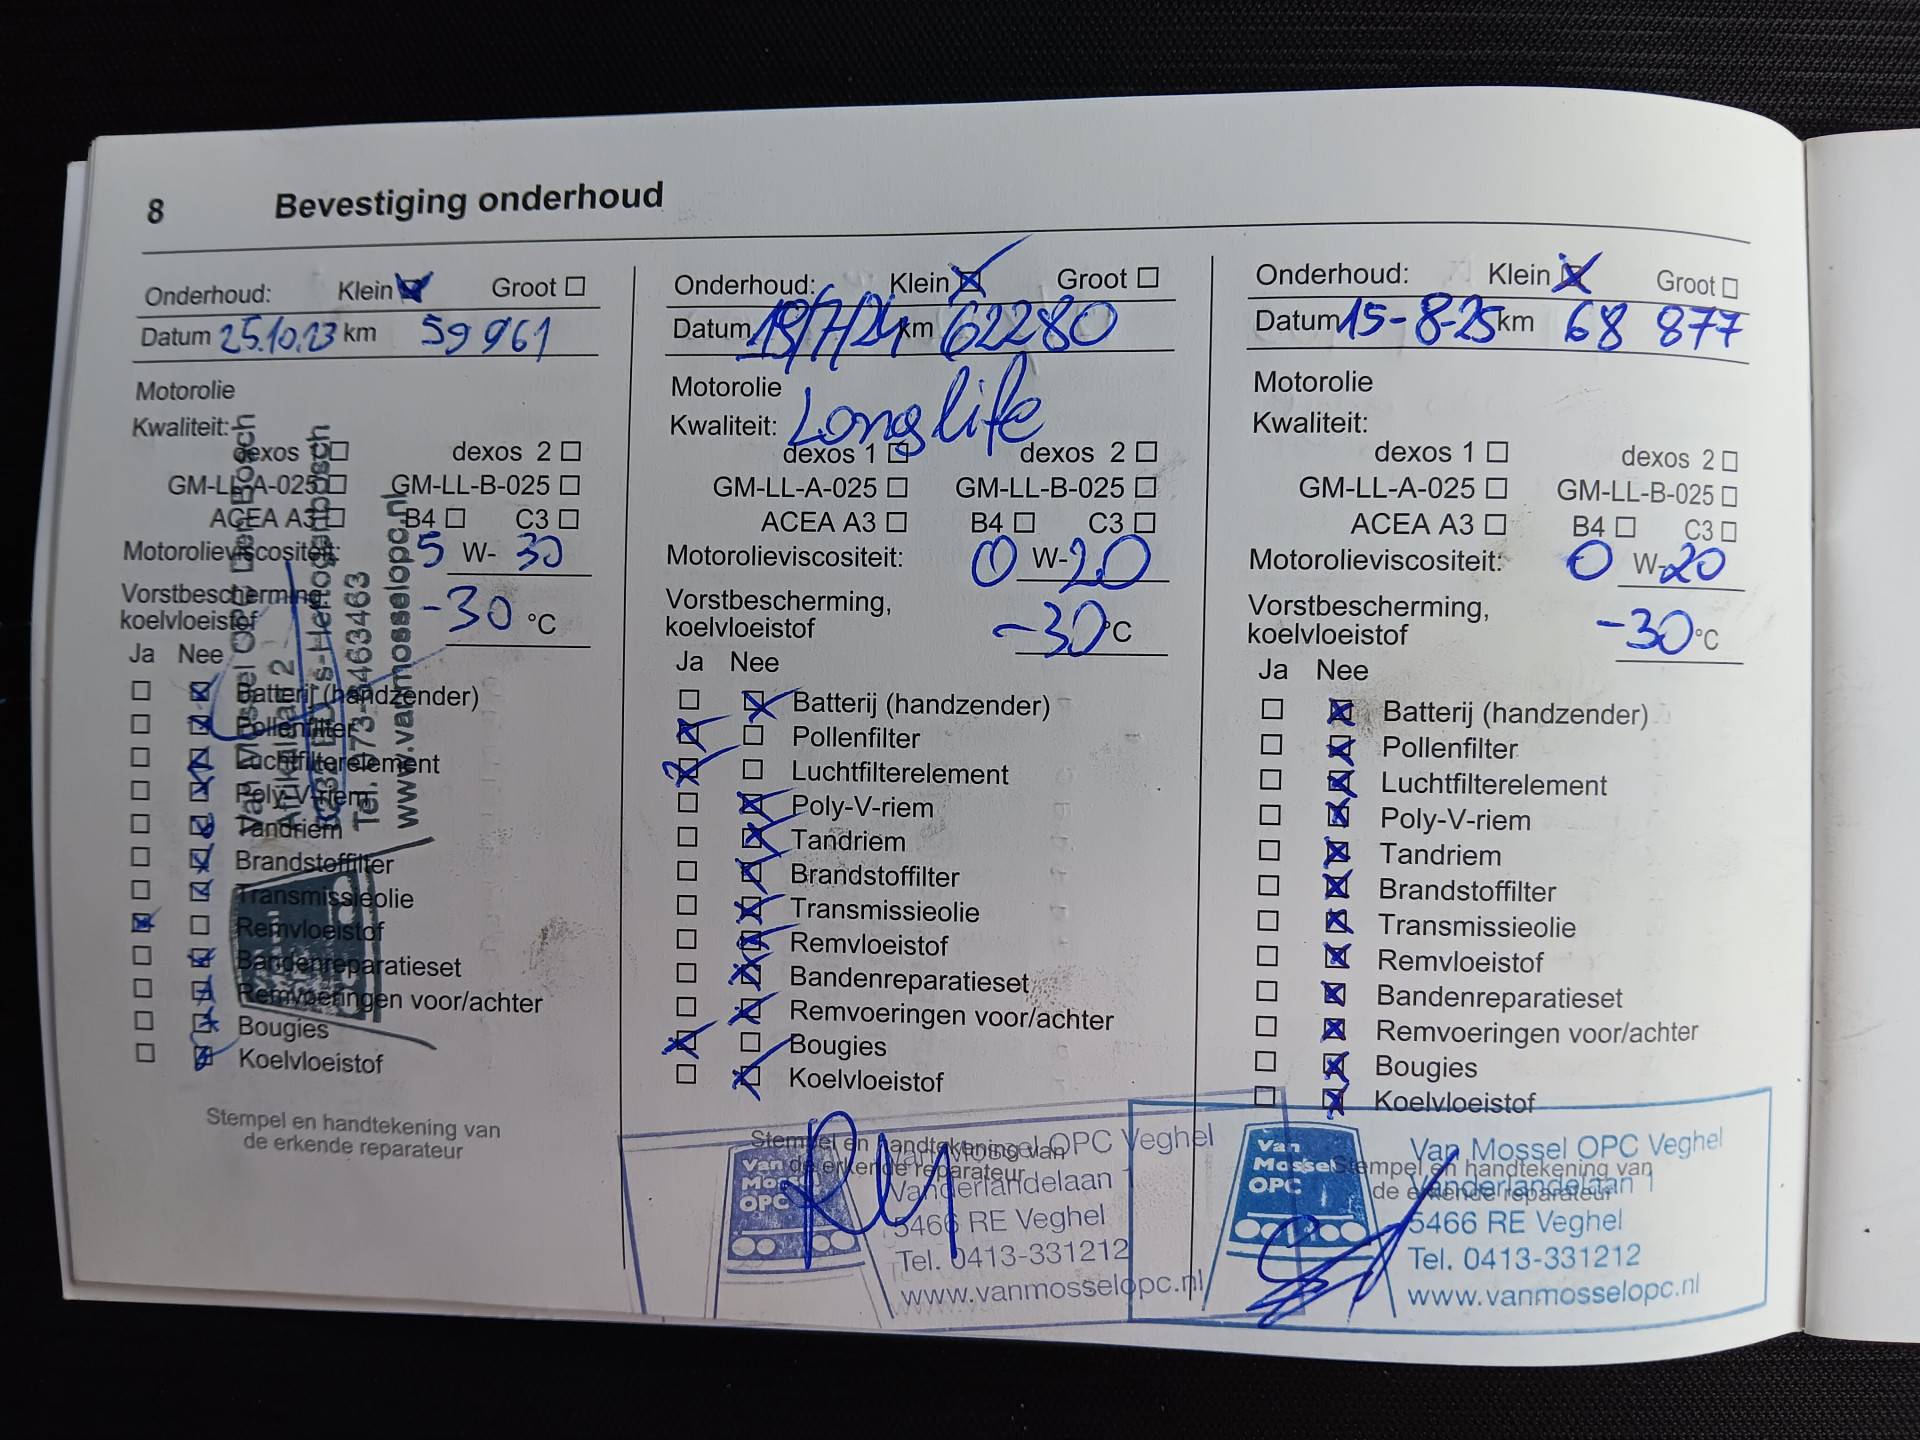 8 Bevestiging onderhoud
Onderhoud: Klein Groot
Datum 25.10.23 km 59961
Motorolie
Kwaliteit:
dexos 1 dexos 2
GM-LL-A-025 GM-LL-B-025
ACEA A3 B4 C3
Motorolieviscositeit: 5 W- 30
Vorstbescherming,
koelvloeistof -30 °C
Ja Nee
Batterij (handzender)
Pollenfilter
Luchtfilterelement
Poly-V-riem
Tandriem
Brandstoffilter
Transmissieolie
Remvloeistof
Bandenreparatieset
Remvoeringen voor/achter
Bougies
Koelvloeistof
Van Mossel OPC Den Bosch
2
's-Hertogenbosch
Tel. 073-8463463
www.vanmosselopc.nl
Stempel en handtekening van
de erkende reparateur
Onderhoud: Klein Groot
Datum 19/7/24 km 62280
Motorolie
Kwaliteit: Longlife
dexos 1 dexos 2
GM-LL-A-025 GM-LL-B-025
ACEA A3 B4 C3
Motorolieviscositeit: 0 W-20
Vorstbescherming,
koelvloeistof -30 °C
Ja Nee
Batterij (handzender)
Pollenfilter
Luchtfilterelement
Poly-V-riem
Tandriem
Brandstoffilter
Transmissieolie
Remvloeistof
Bandenreparatieset
Remvoeringen voor/achter
Bougies
Koelvloeistof
Stempel en handtekening van
de erkende reparateur
Van
Mossel
OPC
Van Mossel OPC Veghel
Vanderlandelaan 1
5466 RE Veghel
Tel. 0413-331212
www.vanmosselopc.nl
Onderhoud: Klein Groot
Datum 15-8-25 km 68 877
Motorolie
Kwaliteit:
dexos 1 dexos 2
GM-LL-A-025 GM-LL-B-025
ACEA A3 B4 C3
Motorolieviscositeit: 0 W-20
Vorstbescherming,
koelvloeistof -30 °C
Ja Nee
Batterij (handzender)
Pollenfilter
Luchtfilterelement
Poly-V-riem
Tandriem
Brandstoffilter
Transmissieolie
Remvloeistof
Bandenreparatieset
Remvoeringen voor/achter
Bougies
Koelvloeistof
Stempel en handtekening van
de erkende reparateur
Van
Mossel
OPC
Van Mossel OPC Veghel
Vanderlandelaan 1
5466 RE Veghel
Tel. 0413-331212
www.vanmosselopc.nl